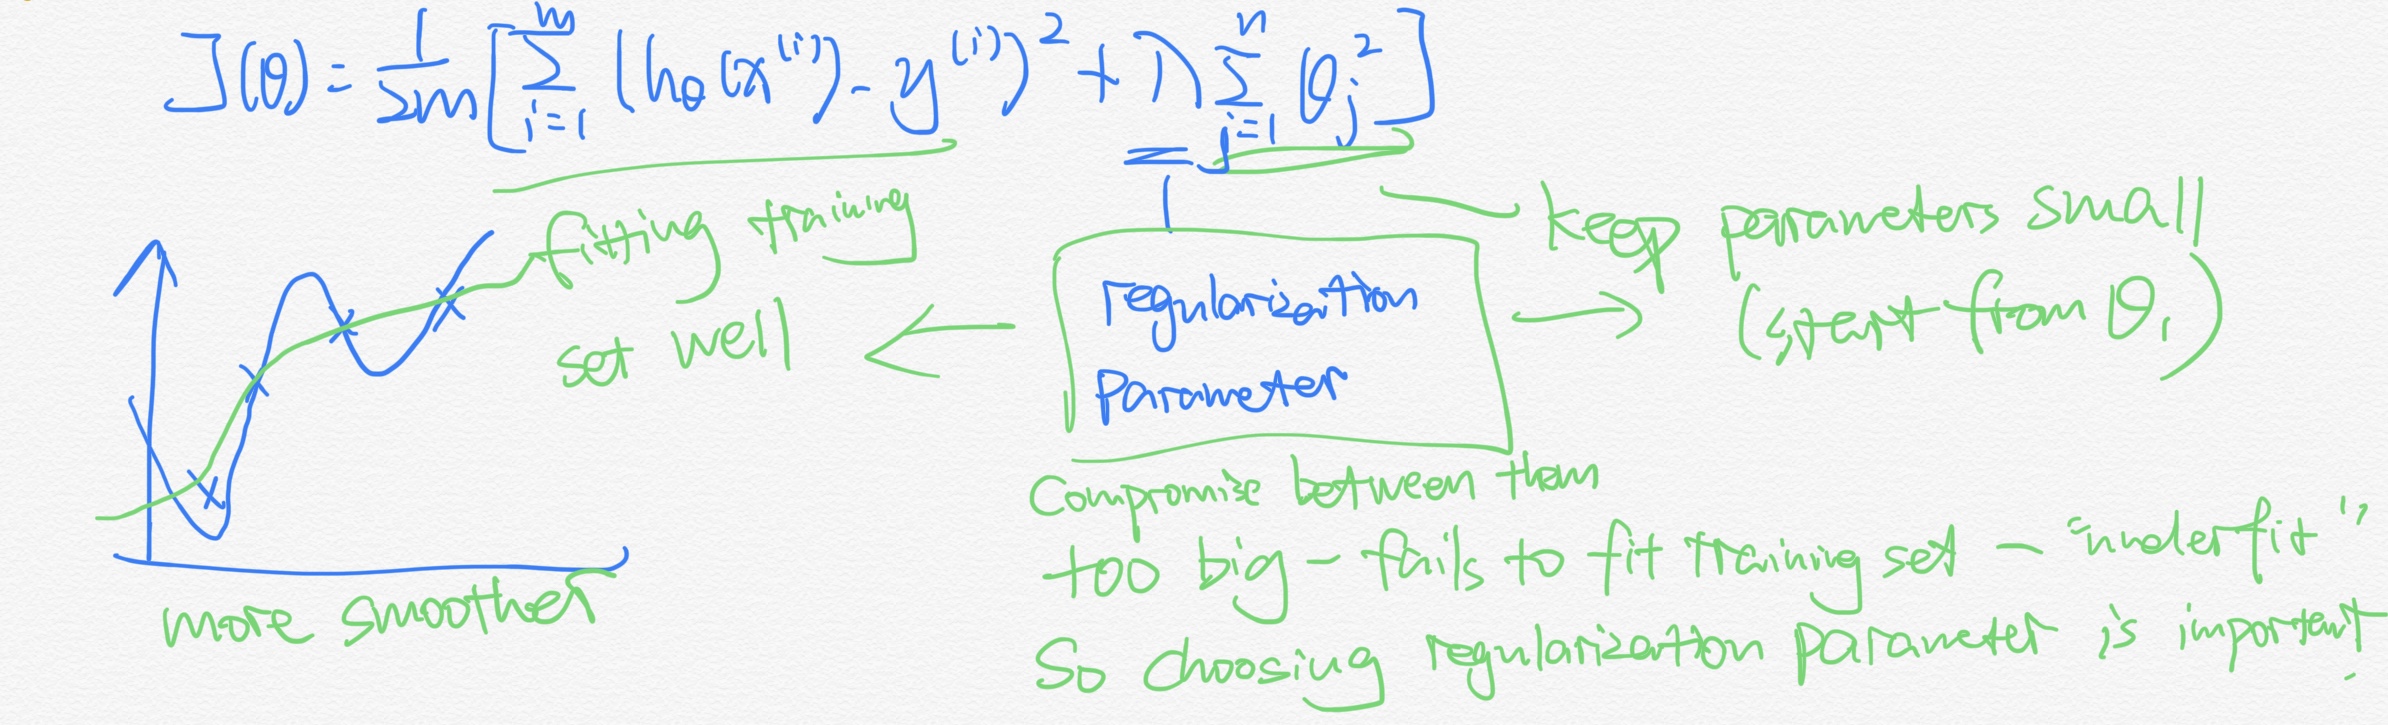 J(θ) = 1/2m [ Σ_{i=1}^{m} (h_θ(x^{(i)}) - y^{(i)})^2 + λ Σ_{j=1}^{n} θ_j^2 ]
fitting training
set well
regularization
parameter
keep parameters small
(start from θ_1)
more smoother
compromise between them
too big - fails to fit training set - "underfit"
So choosing regularization parameter is important.